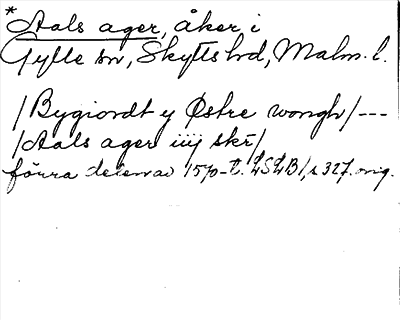 * Aals ager, åker i
Gylle sn, Skytts hd, Malm. l.
/Bygiordt y Østre wongh/ ---
/Aals ager iiij skr/
förra delen av 1570-t. LSLB1, s 327. orig.